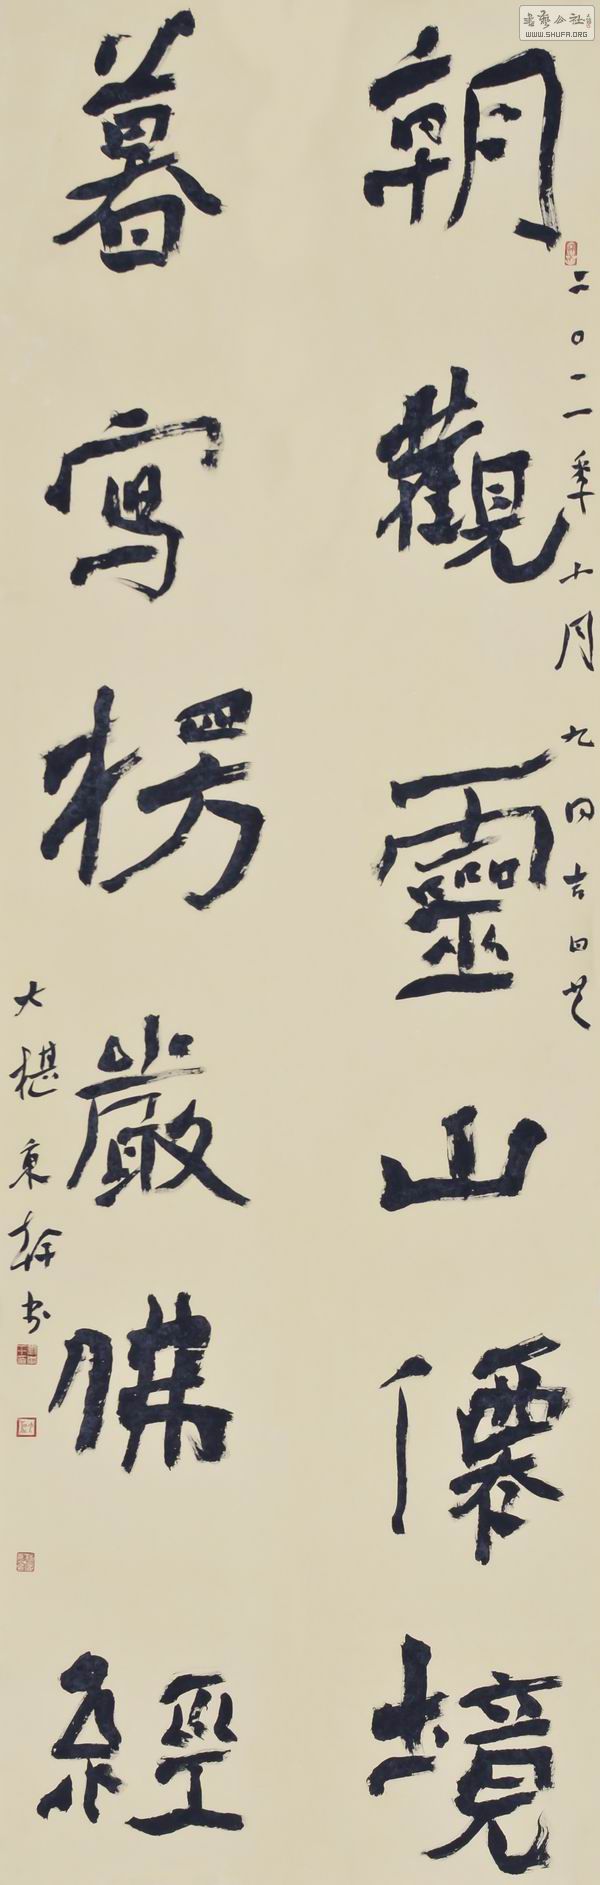 朝觀靈山僊境
二〇一一年十月九日吉日
暮寫楞嚴佛經
大椹秉幹書
書藝公社
WWW.SHUFA.ORG